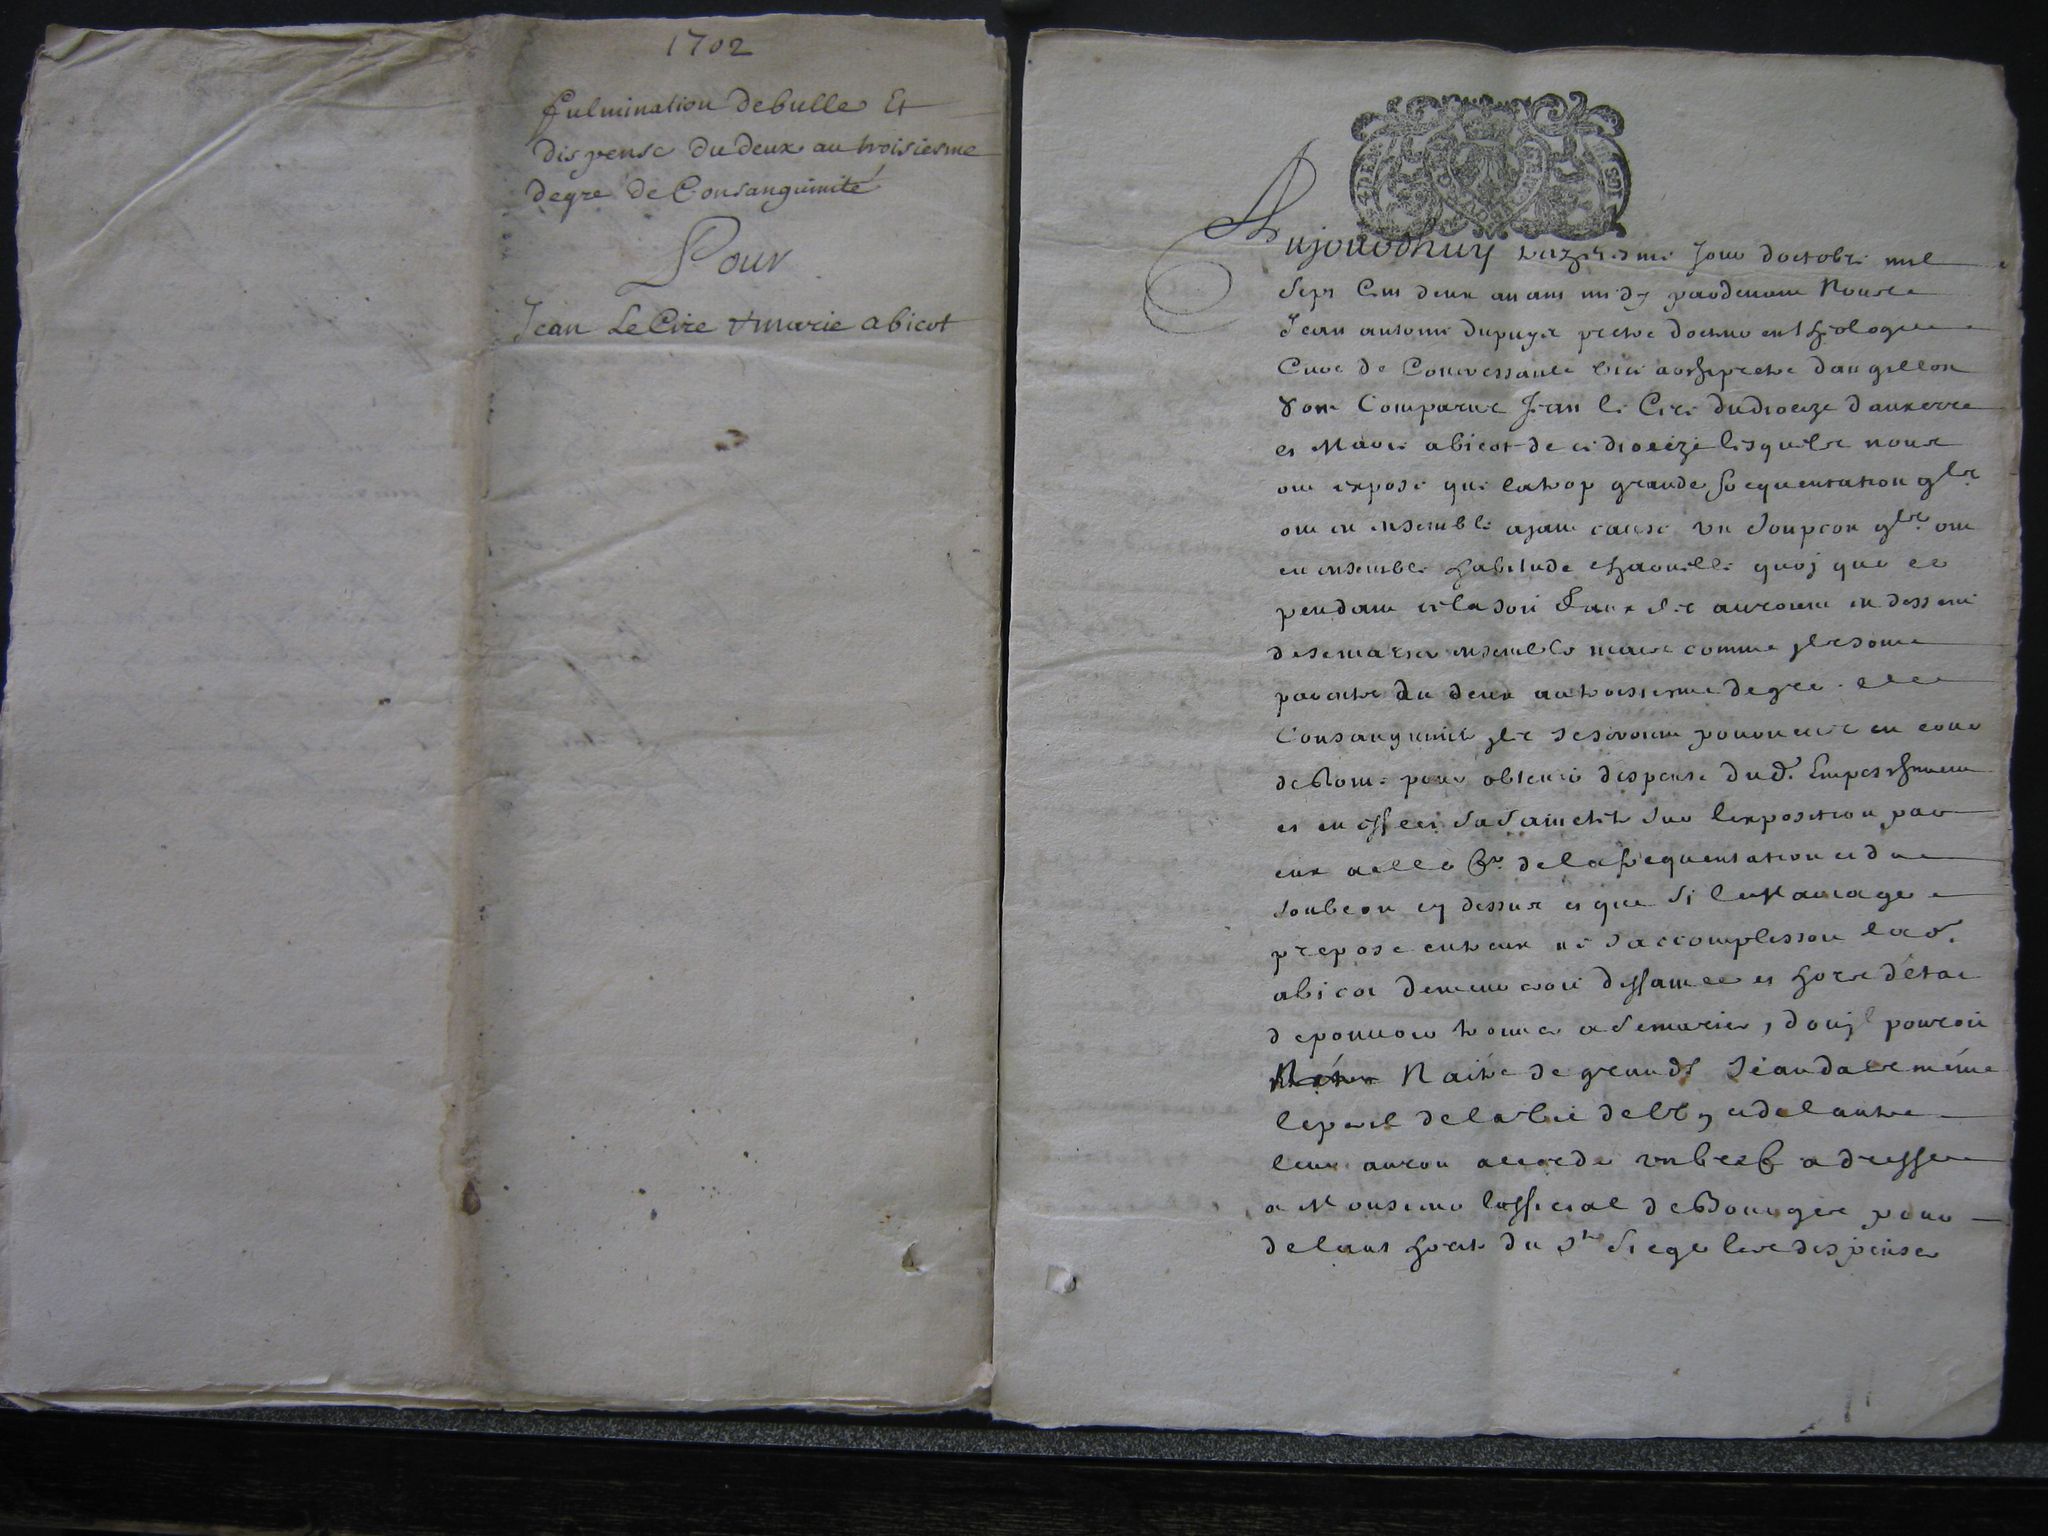 1702
fulmination de bulle Et
dispense du deux au troisiesme
degre de Consanguinité
Pour
Jean Le Cire & marie abicot
Aujourdhuy jour doctobre mil
Sept Cens deux avant midy pardevant Nous
Jean antoine dupuys prestre docteur en theologie
Curé de Concressault archiprestre dangillon
sont Comparus Jean le Cire du diocèze dauxerre
et Marie abicot de ce diocèze lesquels nous
ont exposé que la trop grande frequentation qls
ont eu ensemble ayant causé un Soupçon qls ont
eu ensemble habitude charnelle quoj que ce
pendant cela soit faux ils auroient eu dessein
de se marier ensemble mais comme jls sont
parents du deux au troisiesme degré
Consanguinité jls se seroient pourvus en cour
de Rome pour obtenir dispense dud. Empeschement
et en effect Sa Sainteté Sur lexposition par
eux a elle fe. de la frequentation et du
soubcon cy dessus et que Si le Mariage
proposé entreux ne saccomplissoit lad.
abicot demeureroit diffamée et hors détat
de pouvoir trouver a se marier, dou jl pourroit
Naitre de grands scandales même
le peril de la vie de l'un et de l'autre
leur auroit accordé un bref adressé
a Monsieur lofficial de Bourges pour
de lauthorité du St Siege les dispenser